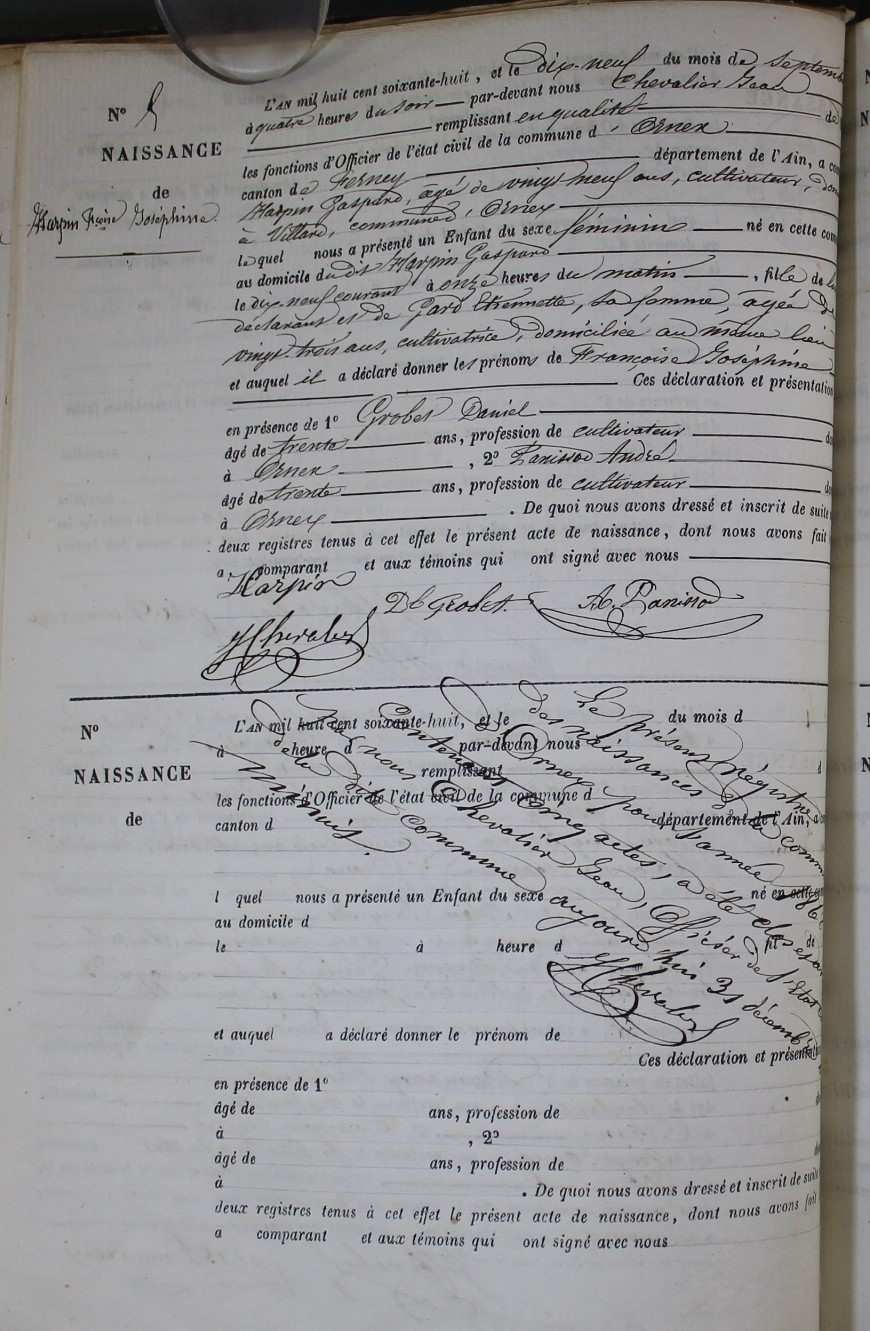 L'AN mil huit cent soixante-huit, et le dix-neuf du mois de Septemb
à quatre heures du soir par-devant nous Chevalier Jean
remplissant en qualité de
les fonctions d'Officier de l'état civil de la commune d' Ornex
canton de Ferney département de l'Ain, a com
Harpin Gaspard, agé de vingt neuf ans, cultivateur, dom
à Villard, commune d'Ornex
lequel nous a présenté un Enfant du sexe féminin né en cette com
au domicile du dit Harpin Gaspard
le dix-neuf courant à onze heures du matin, fille de
déclarant et de Gard Etiennette, sa femme, agée de
vingt-trois ans, cultivatrice, domiciliée au même lieu
et auquel il a déclaré donner les prénoms de Françoise Joséphine
Ces déclaration et présentation
en présence de 1º Grobet Daniel
âgé de trente ans, profession de cultivateur do
à Ornex, 2º Panissod André
âgé de trente ans, profession de cultivateur do
à Ornex. De quoi nous avons dressé et inscrit de suite
deux registres tenus à cet effet le présent acte de naissance, dont nous avons fait
a comparant et aux témoins qui ont signé avec nous
Nº 5
NAISSANCE
de
Harpin Fçoise Joséphine
Harpin
Dl Grobet.
A. Panissod
J Chevalier
Nº
NAISSANCE
de
L'AN mil huit cent soixante-huit, et le du mois d
à heure d par-devant nous d
remplissant
les fonctions d'Officier de l'état civil de la commune d
canton d département de l'Ain, a
l quel nous a présenté un Enfant du sexe né en cette
au domicile d
le à heure d fil de
et auquel a déclaré donner le prénom de
Ces déclaration et présentati
en présence de 1º
âgé de ans, profession de
à , 2º
âgé de ans, profession de
à . De quoi nous avons dressé et inscrit de suite
deux registres tenus à cet effet le présent acte de naissance, dont nous avons fait
a comparant et aux témoins qui ont signé avec nous
Le présent Régistre
des naissances de la comm
d'Ornex, pour l'année 186
Contenant cinq actes, a été clos et ar
par nous Chevalier Jean, Officier de l'Etat
de la dite commune aujourd'hui 31 décembre
Minuit.
J Chevalier